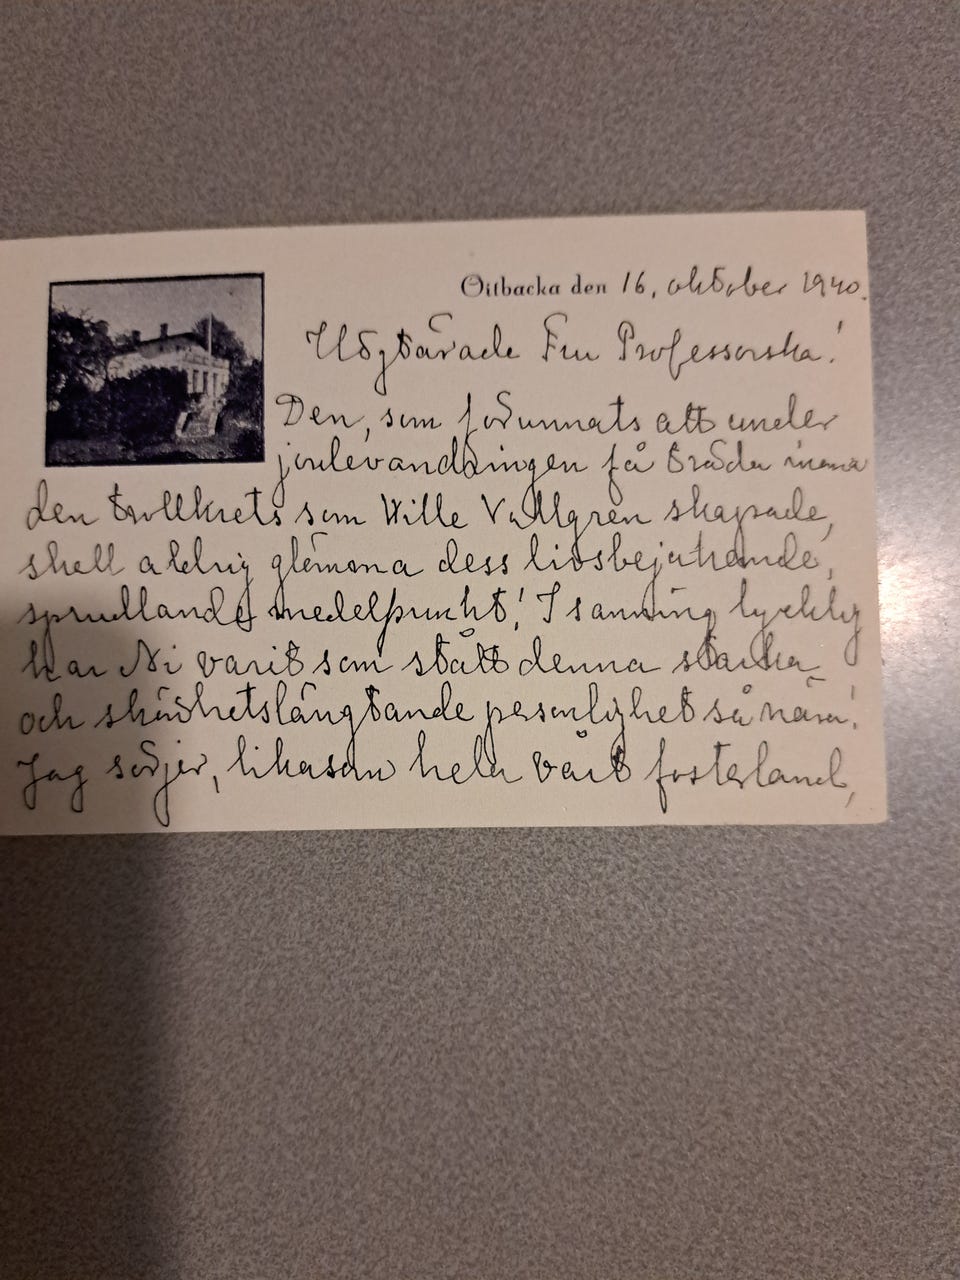 Oitbacka den 16. oktober 1940.
Högtärade Fru Professorska!
Den, som förunnats att under
jordevandringen få träda inom
den trollkrets som Wille Vallgren skapade,
skall aldrig glömma dess livsbejakande,
sprudlande medelpunkt! I sanning lycklig
har Ni varit som stått denna starka
och skönhetslängtande personlighet så nära!
Jag sörjer, likasom hela vårt fosterland,